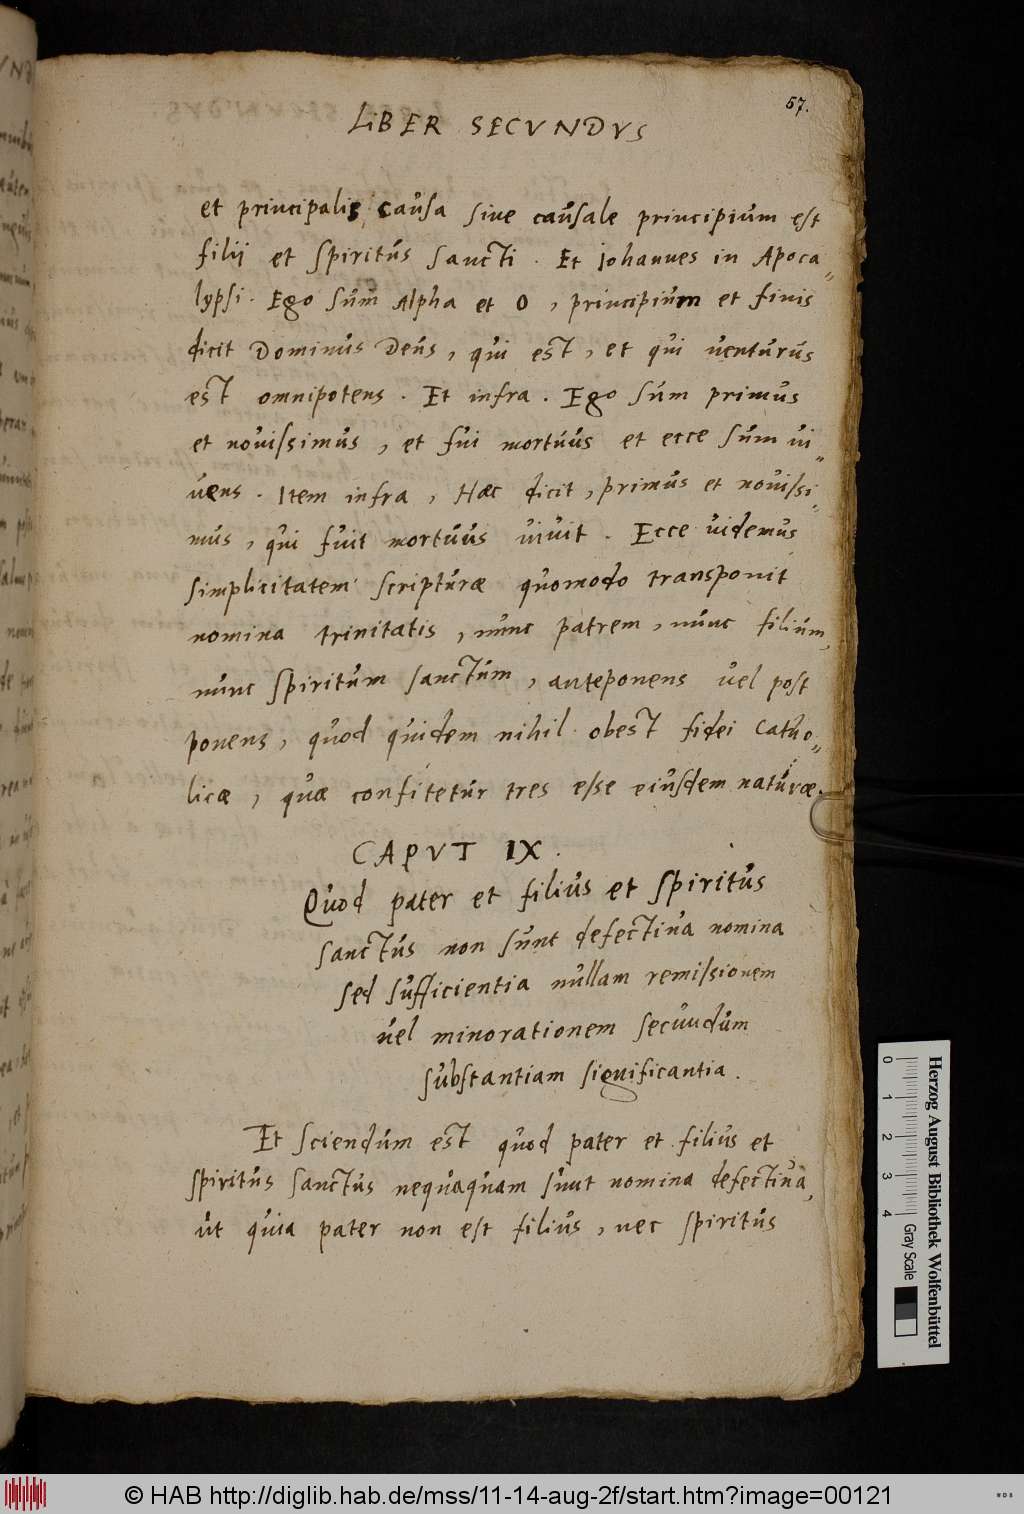 57.
LIBER SECVNDVS
et principalis causa siue causale principium est
filij et spiritus sancti. Et Iohannes in Apoca„
lypsi. Ego sum Alpha et O, principium et finis
dicit Dominus Deus, qui est, et qui uenturus
est omnipotens. Et infra. Ego sum primus
et nouissimus, et fui mortuus et ecce sum ui„
uens. Item infra, Hæc dicit, primus et nouissi„
mus, qui fuit mortuus uiuit. Ecce uidemus
simplicitatem scripturæ quomodo transponit
nomina trinitatis, nunc patrem, nunc filium,
nunc spiritum sanctum, anteponens uel post
ponens, quod quidem nihil obest fidei Catho„
licæ, quæ confitetur tres esse eiusdem naturæ.
CAPVT IX.
Quod pater et filius et spiritus
sanctus non sunt defectiua nomina
sed sufficientia nullam remissionem
uel minorationem secundum
substantiam significantia.
Et sciendum est quod pater et filius et
spiritus sanctus nequaquam sunt nomina defectiua,
ut quia pater non est filius, nec spiritus
0 1 2 3 4
Gray Scale
Herzog August Bibliothek Wolfenbüttel
© HAB http://diglib.hab.de/mss/11-14-aug-2f/start.htm?image=00121